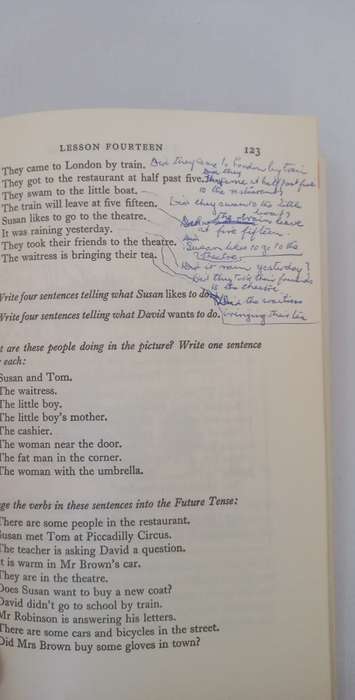 LESSON FOURTEEN 123
They came to London by train. Did they came to London by train
They got to the restaurant at half past five. Did they came at half past five
to the restaurant?
They swam to the little boat. Did they swam to the little
boat?
The train will leave at five fifteen. The train leave
at five fifteen
Susan likes to go to the theatre. Susan like to go to the
theatre
It was raining yesterday. Did it rain yesterday?
They took their friends to the theatre. Did they took their friends
to the theatre
The waitress is bringing their tea. Did the waitress
bringing their tea
Write four sentences telling what Susan likes to do.
Write four sentences telling what David wants to do.
t are these people doing in the picture? Write one sentence
each:
Susan and Tom.
The waitress.
The little boy.
The little boy's mother.
The cashier.
The woman near the door.
The fat man in the corner.
The woman with the umbrella.
ge the verbs in these sentences into the Future Tense:
There are some people in the restaurant.
Susan met Tom at Piccadilly Circus.
The teacher is asking David a question.
It is warm in Mr Brown's car.
They are in the theatre.
Does Susan want to buy a new coat?
David didn't go to school by train.
Mr Robinson is answering his letters.
There are some cars and bicycles in the street.
Did Mrs Brown buy some gloves in town?